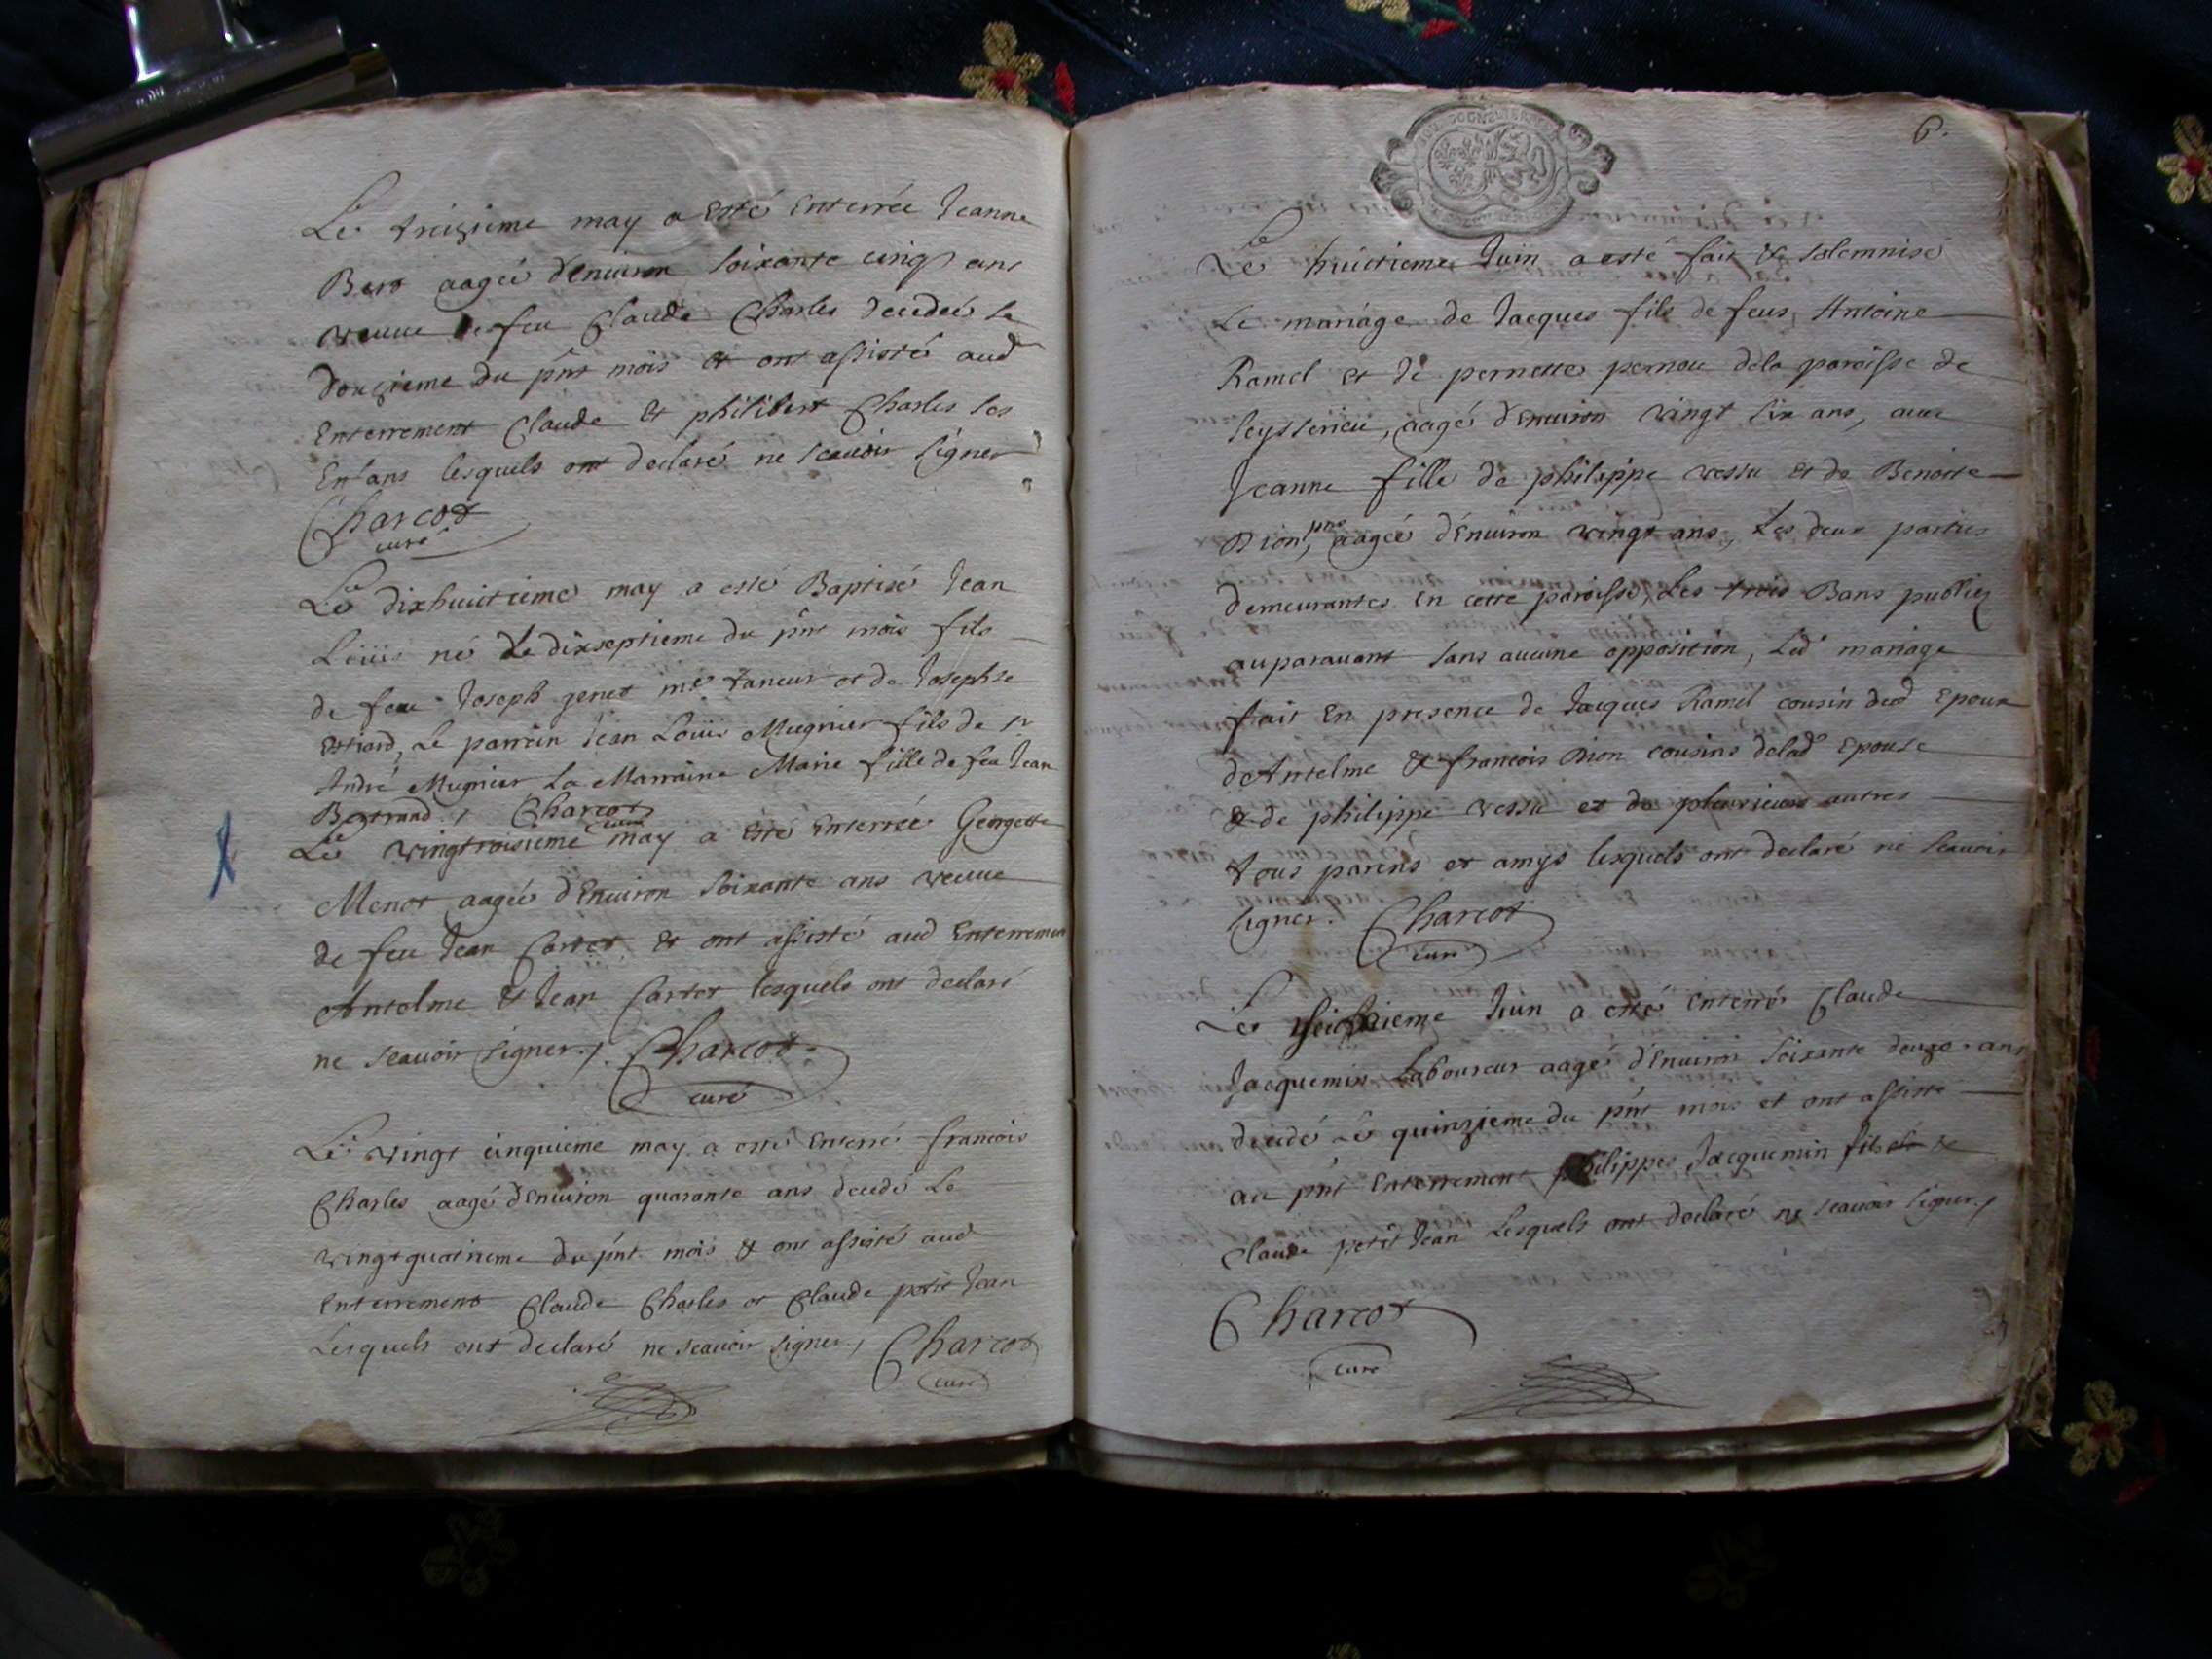 Le treizieme may a esté enterrée Jeanne
aagée d'enuiron soixante cinq ans
veuue de feu Claude Charles decedée le
douzieme du pñt mois et ont assisté aud
enterrement Claude et philibert Charles ses
enfans lesquels ont declaré ne scauoir signer
Charcot
curé
Le dixhuictieme may a esté Baptisé Jean
Loüis né le dixseptieme du pñt mois fils
de feu Joseph genet mê taneur et de Josephte
Le parrain Jean Loüis Mugnier fils de Sr
André Mugnier La Marraine Marie fille de feu Jean
Bertrand / Charcot
curé
Le vingtroisieme may a esté enterrée Georgette
Menot aagée d'enuiron soixante ans veuue
de feu Jean Cartet et ont assisté aud enterrement
Antelme et Jean Cartet lesquels ont declaré
ne scauoir signer./. Charcot
curé
Le vingt cinquieme may a esté enterré francois
Charles aagé d'enuiron quarante ans decedé Le
vingtquatrieme du pñt mois et ont assisté aud
enterrement Claude Charles et Claude petit Jean
Lesquels ont declaré ne scauoir signer./ Charcot
curé
6.
Le huictieme Juin a esté fait et solemnisé
Le mariage de Jacques fils de feus Antoine
Ramel et de pernette pernou dela paroisse de
Seysserieu, aagé d'enuiron vingt six ans, auec
Jeanne fille de philippe vessu et de Benoite
Dion, aagée d'enuiron vingt ans, Les deux parties
demeurantes en cette paroisse, Les trois Bans publiez
auparauant sans aucune opposition, Led mariage
fait en presence de Jacques Ramel cousin dud epoux
d'Antelme et francois Dion cousins delad epouse
et de philippe vessu et de plusieurs autres
tous parens et amys lesquels ont declaré ne scauoir
signer. Charcot
curé
Le seizieme Juin a esté enterré Claude
Jacquemin Laboureur aagé d'enuiron soixante douze ans
decedé Le quinzieme du pñt mois et ont assisté
au pñt enterrement philippes Jacquemin fils et
Claude petit Jean Lesquels ont declaré ne scauoir signer./
Charcot
curé